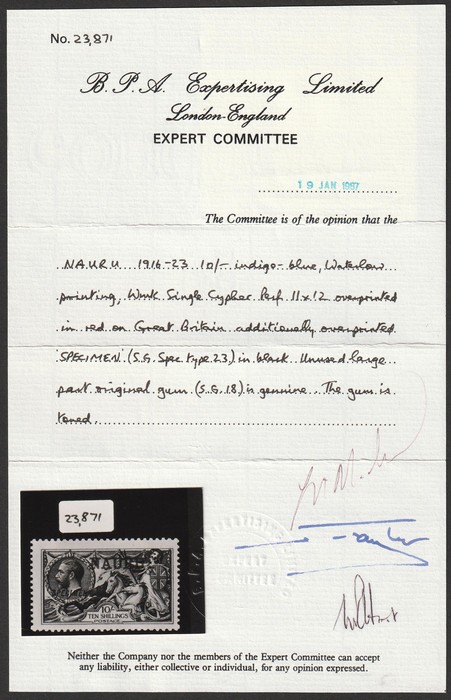 No. 23,871
B.P.A. Expertising Limited
London-England
EXPERT COMMITTEE
19 JAN 1987
The Committee is of the opinion that the
NAURU 1916-23 10/- indigo-blue, Waterlow
printing, Wmk Single Cypher Perf 11x12 overprinted
in red on Great Britain additionally overprinted
'SPECIMEN' (S.G. Spec type 23) in black. Unused large
part original gum (S.G. 18) is genuine. The gum is
toned.
23,871
EXPERT
COMMITTEE
NAURU
SPECIMEN
10/-
TEN SHILLINGS
POSTAGE
Neither the Company nor the members of the Expert Committee can accept
any liability, either collective or individual, for any opinion expressed.